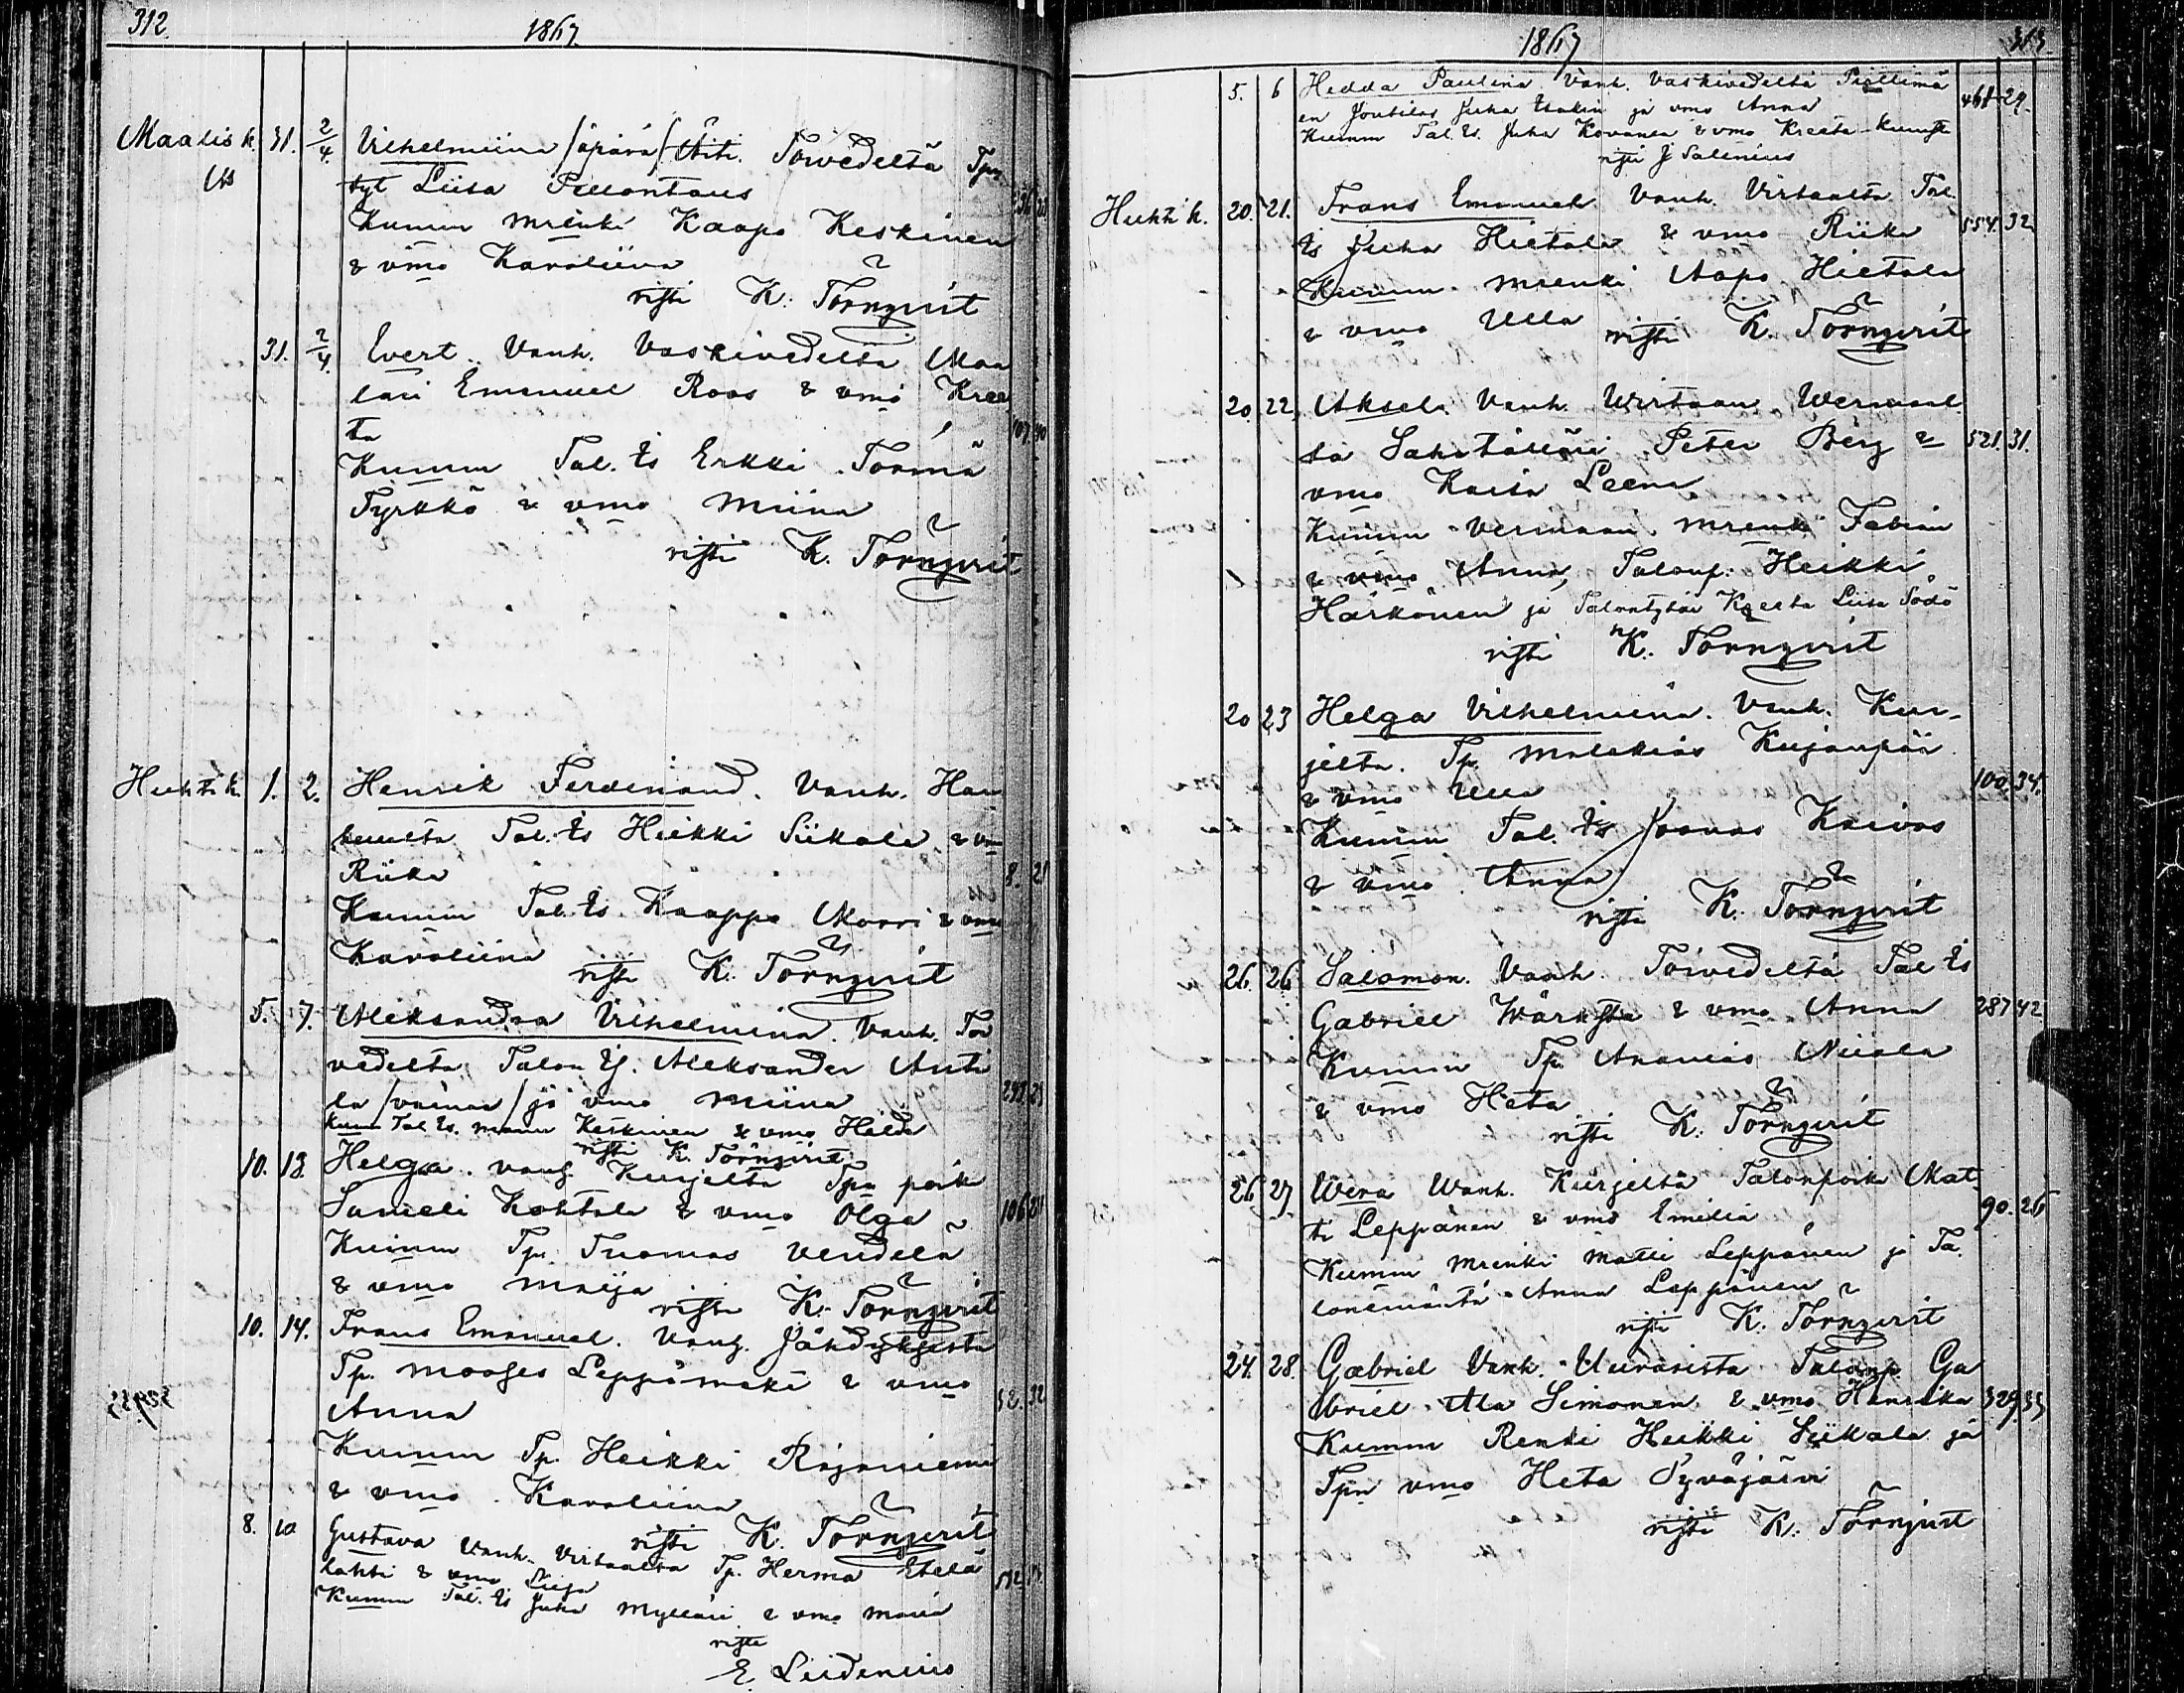 312.
1867.
Maalis k. 31. 2/4. Vilhelmiina /äpärä/ Äiti. Toivedeltä Tpn
tyt Liisa
Kumm Mrenki Kaapo Keskinen
& vmo Karoliina
risti K. Törnqvist
31. 2/4. Evert. Vanh. Vaskivedeltä Maa
lari Emanuel Roos & vmo Kree
ta
107 40
Kumm Tal. Is Erkki Tormä
Tyrkkö & vmo Miina
risti K. Törnqvist
Huhti k. 1. 2. Henrik Ferdinand. Vanh. Hau
Tal. Is Heikki Siikala & vm
Riika
8. 21
Kumm Tal. Is Kaappo Morri & vmo
Karoliina risti K. Törnqvist
5. 7. Aleksandra Vilhelmina. Vanh. Toi
vedeltä Talon Is. Aleksander Anti
la /vainaa/ ja vmo Miina
Kum Tal Is. Manu Keskinen & vmo Hilda
risti K. Törnqvist
10. 13. Helga. vanh. Kurjelta Tpn poik
Sameli Kohtala & vmo Olga
106 21
Kumm Tp. Tuomas Vendelä
& vmo Maija
risti K. Törnqvist
10. 14. Frans Emanuel. Vanh. Jähdyksestä
Tp. Mooses Leppämäki & vmo
Anna
52. 32
Kumm Tp. Heikki Rajaniemi
& vmo Karoliina
risti K. Törnqvist
8. 10 Gustava Vanh. Virtaalta Tp. Herma Etelä
lahti & vmo Liisa
Kumm Tal. Is Juha Mylläri & vmo Maria
risti
E. Lindenius
1867
313.
5. 6 Hedda Paulina Vanh. Vaskivedeltä
en Joutilas Juha Iisakin ja vmo Anna
461 29.
Kumm Tal. Is. Juha Kovanen & vmo Kreeta
risti J Salenius
Huhti k. 20. 21. Frans Emanuel. Vanh. Virtaalta Tal.
Is Juha Hietala & vmo Riika
554. 32
Kumm Mrenki Aapo Hietala
& vmo Ulla risti K. Törnqvist
20. 22. Aksel. Vanh. Virtaan Vermaal
ta Sahatälläri Peter Berg &
521. 31.
vmo Kaisa Leena
Kumm Vermaan Mrenki Fabian
& vmo Anna, Talonp. Heikki
Härkönen ja Talontytär Kreeta Liisa Södö
risti K. Törnqvist
20 23 Helga Vilhelmina. Vanh. Kur-
jelta. Tp. Malakias Kujanpää
& vmo Ulla
100. 34.
Kumm Tal. Is Joonas Kaivos
& vmo Anna
risti K. Törnqvist
26. 26 Salomon. Vanh. Toivedeltä Tal Is
Gabriel & vmo Anna
287 42
Kumm Tp. Ananias Niiala
& vmo Heta
risti K. Törnqvist
26 27 Wera Wanh. Kurjelta Talonpoik Mat
ti Leppänen & vmo Emilia
90. 26
Kumm Mrenki Matti Leppänen ja Ta
lonemäntä Anna Leppänen
risti K. Törnqvist
24. 28. Gabriel Vanh. Uurasista Talonp. Ga
briel Ala Simonen & vmo Henrika
329 33
Kumm Renki Heikki Siikala ja
Tpn vmo Heta Syväjärvi
risti K. Törnqvist